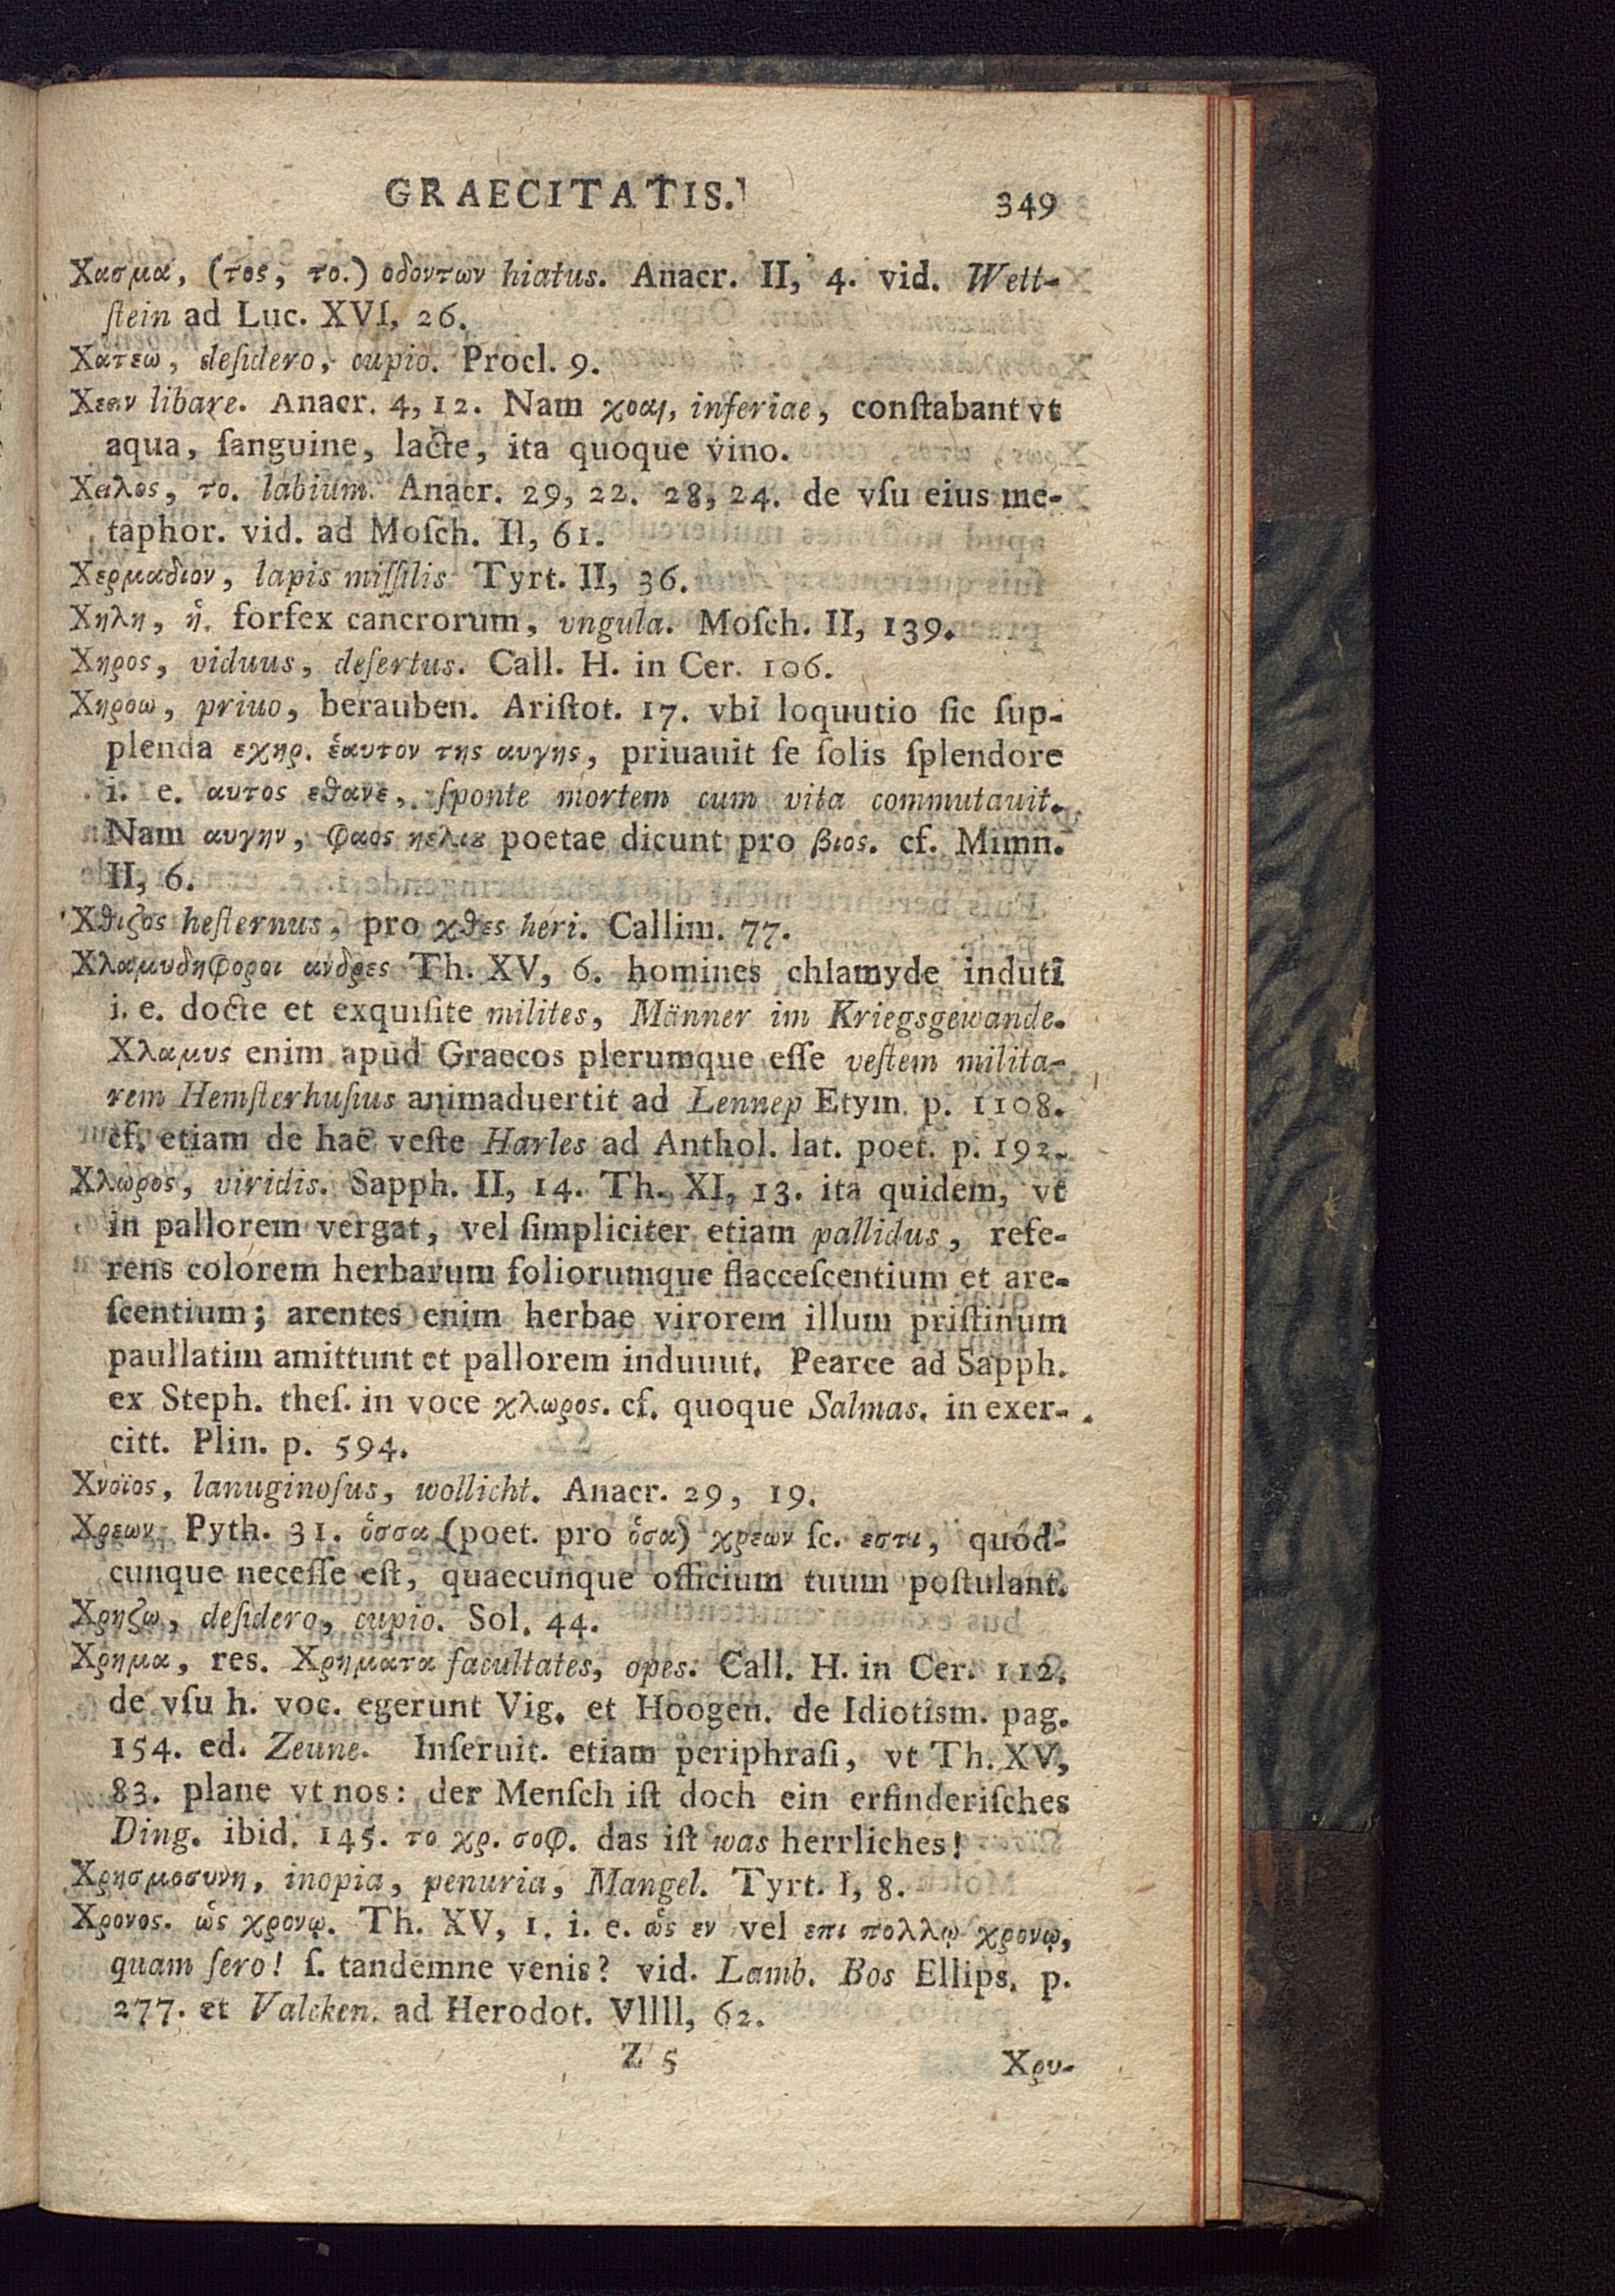 GRAECITATIS. 349
Χασμα, (τος, το.) οδοντων hiatus. Anacr. II, 4. vid. Wett-
ſtein ad Luc. XVI, 26.
Χατεω, deſidero, cupio. Procl. 9.
Χεειν libare. Anacr. 4, 12. Nam χοαι, inferiae, conſtabant vt
aqua, ſanguine, lacte, ita quoque vino.
Χειλος, το. labium. Anacr. 29, 22. 28, 24. de vſu eius me-
taphor. vid. ad Moſch. II, 61.
Χερμαδιον, lapis miſſilis Tyrt. II, 36.
Χηλη, ἡ. forfex cancrorum, vngula. Moſch. II, 139.
Χηρος, viduus, deſertus. Call. H. in Cer. 106.
Χηροω, priuo, berauben. Ariſtot. 17. vbi loquutio ſic ſup-
plenda εχηρ. ἑαυτον της αυγης, priuauit ſe ſolis ſplendore
i. e. αυτος εθανε, ſponte mortem cum vita commutauit.
Nam αυγην, φαος ηελιȣ poetae dicunt pro βιος. cf. Mimn.
II, 6.
Χθιζος heſternus, pro χθες heri. Callim. 77.
Χλαμυδηφοροι ανδρες Th. XV, 6. homines chlamyde induti
i. e. docte et exquiſite milites, Männer im Kriegsgewande.
Χλαμυς enim apud Graecos plerumque eſſe veſtem milita-
rem Hemſterhuſius animaduertit ad Lennep Etym. p. 1108.
cf. etiam de hac veſte Harles ad Anthol. lat. poet. p. 192.
Χλωρος, viridis. Sapph. II, 14. Th. XI, 13. ita quidem, vt
in pallorem vergat, vel ſimpliciter etiam pallidus, refe-
rens colorem herbarum foliorumque flacceſcentium et are-
ſcentium; arentes enim herbae virorem illum priſtinum
paullatim amittunt et pallorem induuut. Pearce ad Sapph.
ex Steph. theſ. in voce χλωρος. cf. quoque Salmas. in exer-
citt. Plin. p. 594.
Χνοϊος, lanuginoſus, wollicht. Anacr. 29, 19.
Χρεων Pyth. 31. ὁσσα (poet. pro ὁσα) χρεων ſc. εστι, quod-
cunque neceſſe eſt, quaecunque officium tuum poſtulant.
Χρηζω, deſidero, cupio. Sol. 44.
Χρημα, res. Χρηματα facultates, opes. Call. H. in Cer. 112.
de vſu h. voc. egerunt Vig. et Hoogen. de Idiotism. pag.
154. ed. Zeune. Inſeruit. etiam periphraſi, vt Th. XV,
83. plane vt nos: der Menſch iſt doch ein erfinderiſches
Ding. ibid. 145. το χρ. σοφ. das iſt was herrliches!
Χρησμοσυνη, inopia, penuria, Mangel. Tyrt. I, 8.
Χρονος. ὡς χρονῳ. Th. XV, 1. i. e. ὡς εν vel επι πολλῳ χρονῳ,
quam ſero! ſ. tandemne venis? vid. Lamb. Bos Ellips. p.
277. et Valcken. ad Herodot. VIIII, 62.
Z 5 Χρυ-